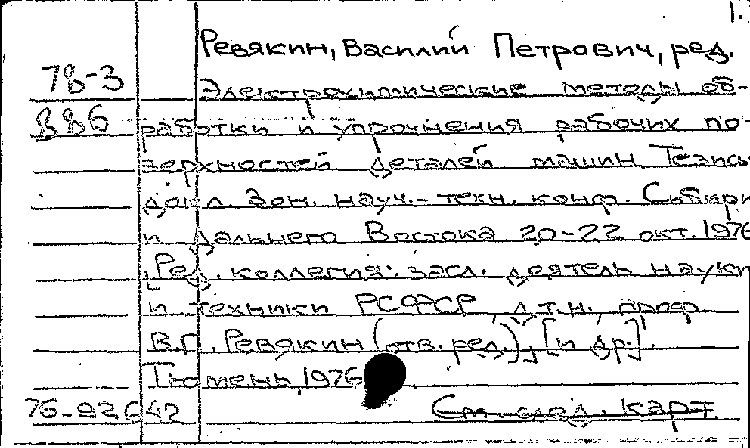 1.
Ревякин, Василий Петрович, ред.
78-3
Электрохимические методы об-
886
работки и упрочнения рабочих по-
верхностей деталей машин. Тезисы
докл. Зон. науч.-техн. конф. Сибири
и Дальнего Востока 20-22 окт. 1976
[Ред. коллегия: засл. деятель науки
и техники РСФСР, д.т.н., проф.
В.П. Ревякин (отв. ред.), [и др.].
Тюмень, 1976
76-92642 См. след. карт.